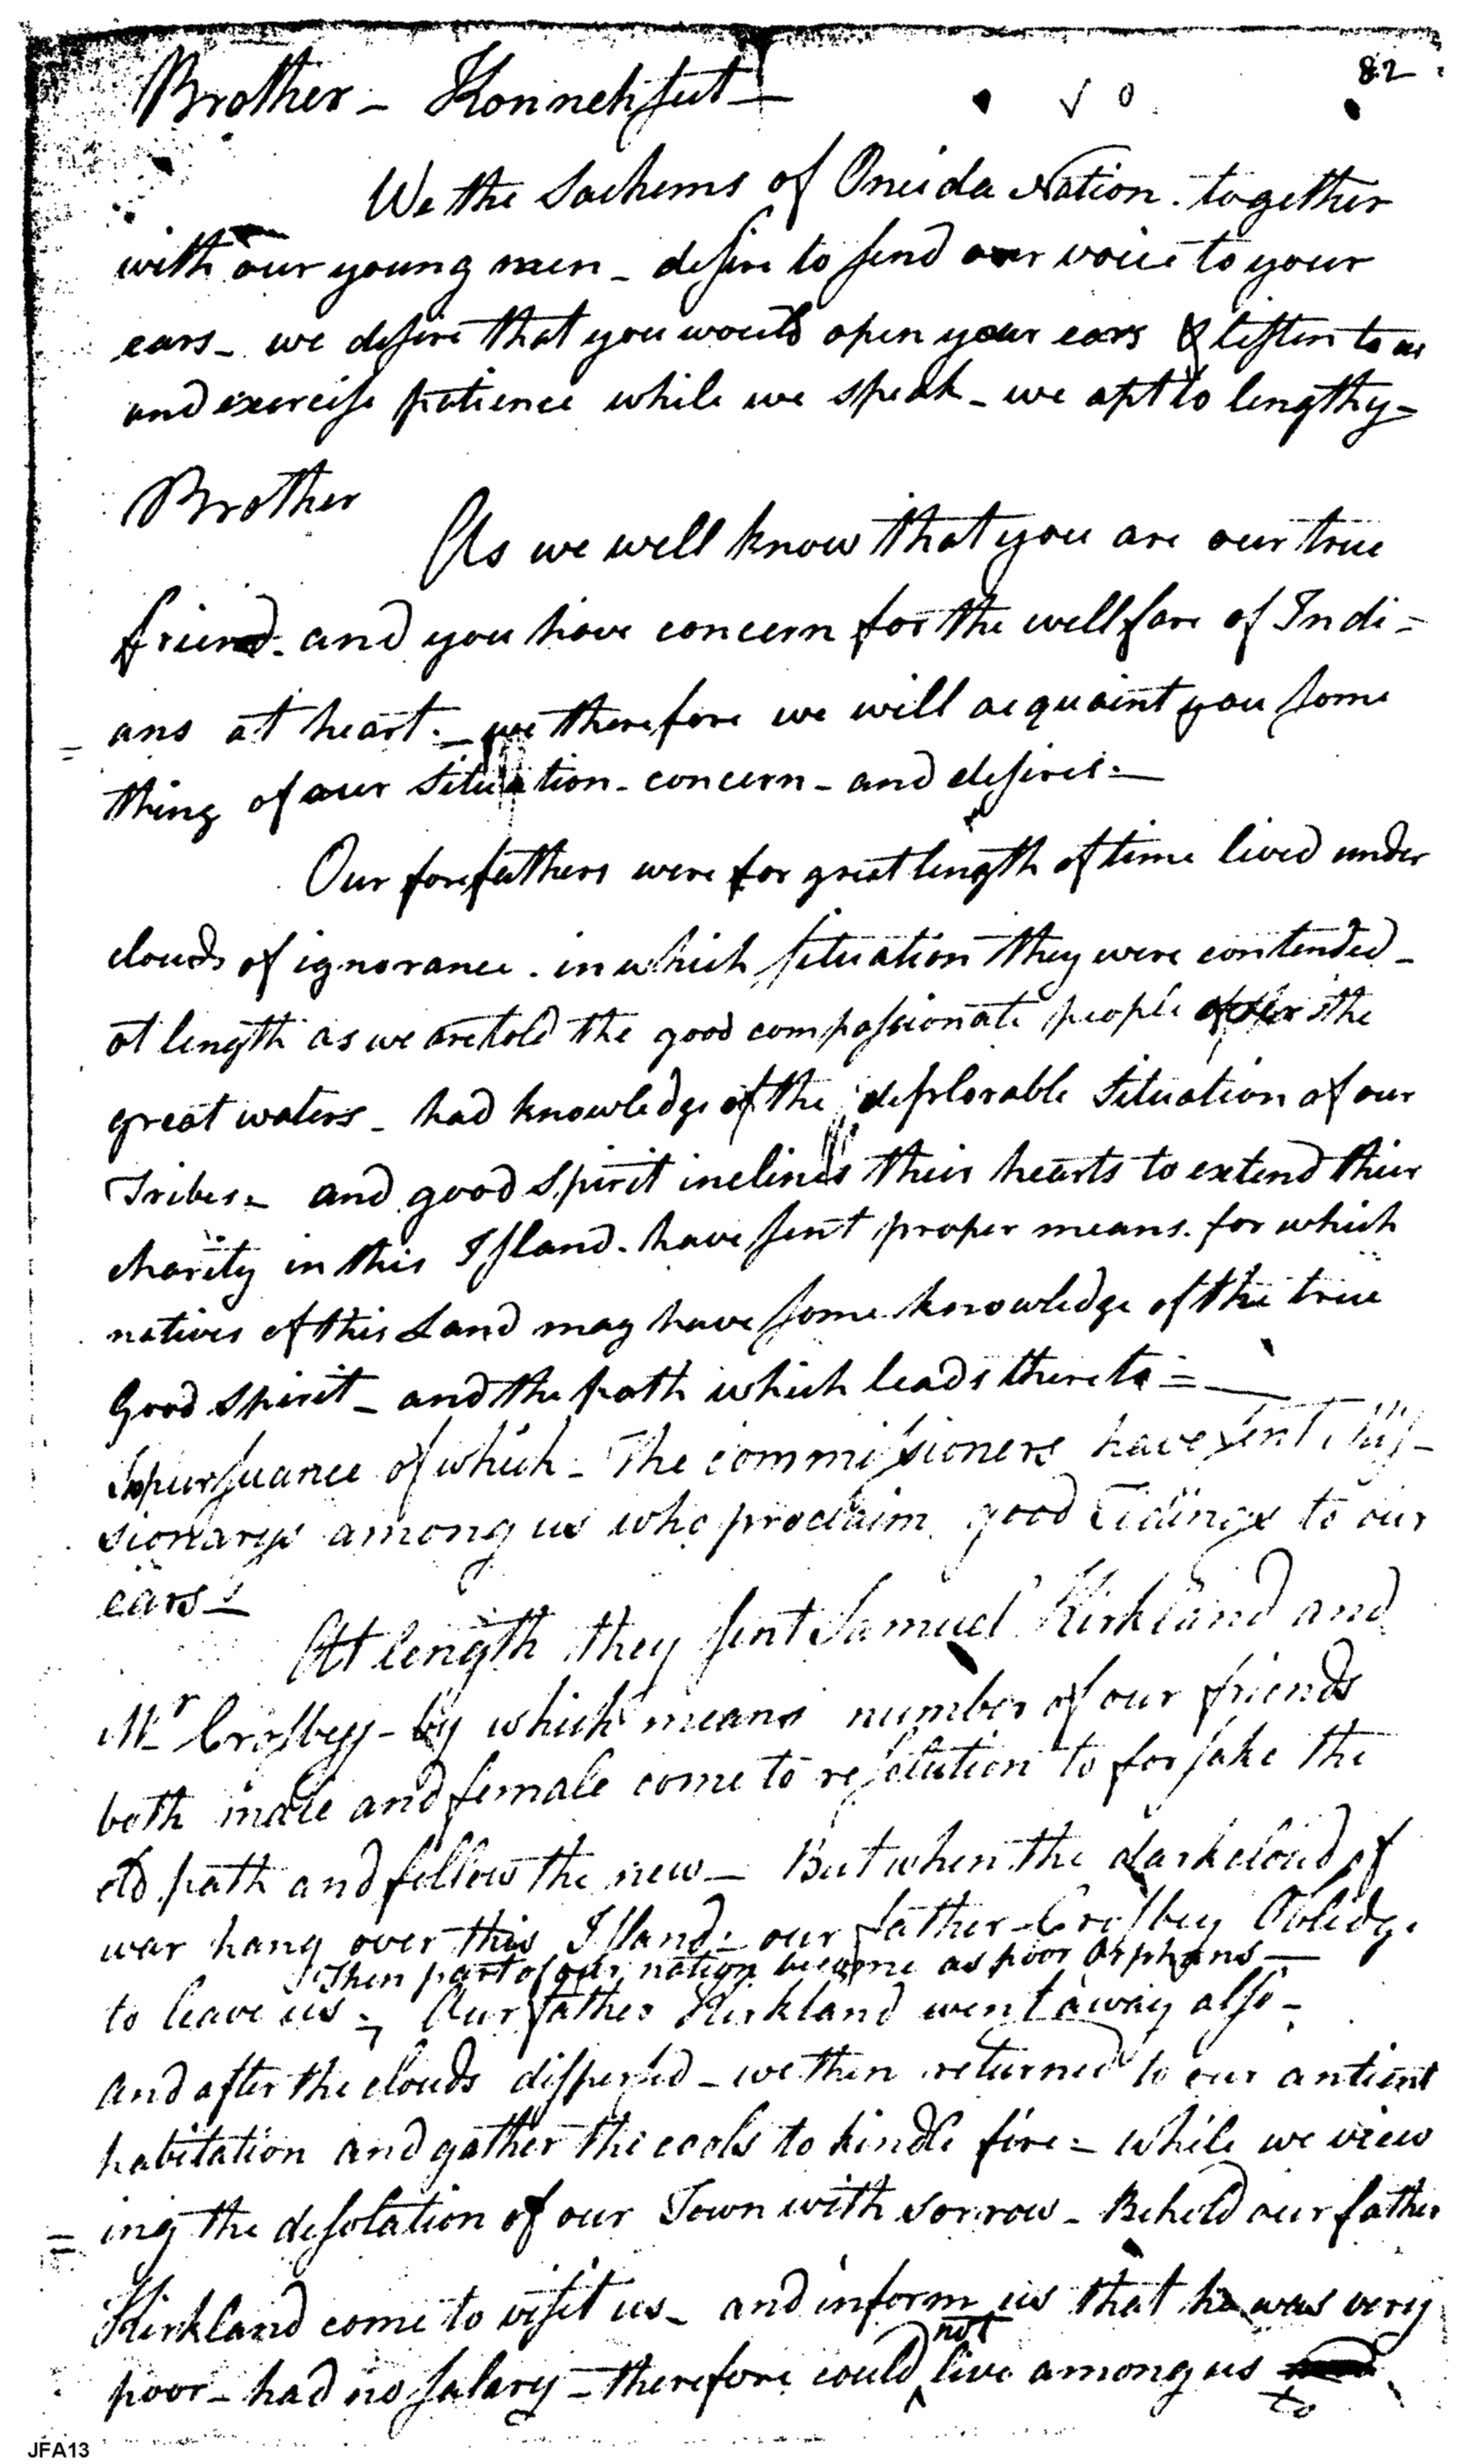 82
Brother - Konnehsut -
We the Sachems of Oneida Nation. together
with our young men - desire to send our voice to your
ears - we desire that you would open your ears & listen to us
and exercise patience while we speak - we apt to lengthy -
Brother
As we well know that you are our true
friend - and you have concern for the wellfare of Indi =
= ans at heart. - we therefore we will acquaint you some
thing of our Situation - concern - and desires. -
Our forefathers were for great length of time lived under
clouds of ignorance. in which situation they were contended -
at length as we are told the good compassionate people over the
great waters - had knowledge of the deplorable Situation of our
Tribes - and good Spirit inclines their hearts to extend their
charity in this Island. have sent proper means. for which
natives of this Land may have some knowledge of the true
Good Spirit - and the path which leads thereto = -
In pursuance of which - The commissioners have sent Mis-
sionarys among us who proclaim good Tidings to our
ears -
At length they sent Samuel Kirkland and
Mr Crosbey - by which means number of our friends
both male and female come to resolution to forsake the
old path and follow the new - But when the dark cloud of
war hang over this Island - our father Crosbey Oblidge
Then part of our nation become as poor Orphans -
to leave us - Our father Kirkland went away also -
and after the clouds dispersed - we then returned to our antient
habitation and gather the coals to kindle fire = while we view
= ing the desolation of our Town with sorrow - Behold our father
Kirkland come to visit us - and inform us that he was very
not
poor - had no salary - therefore could ^ live among us
to
JFA13